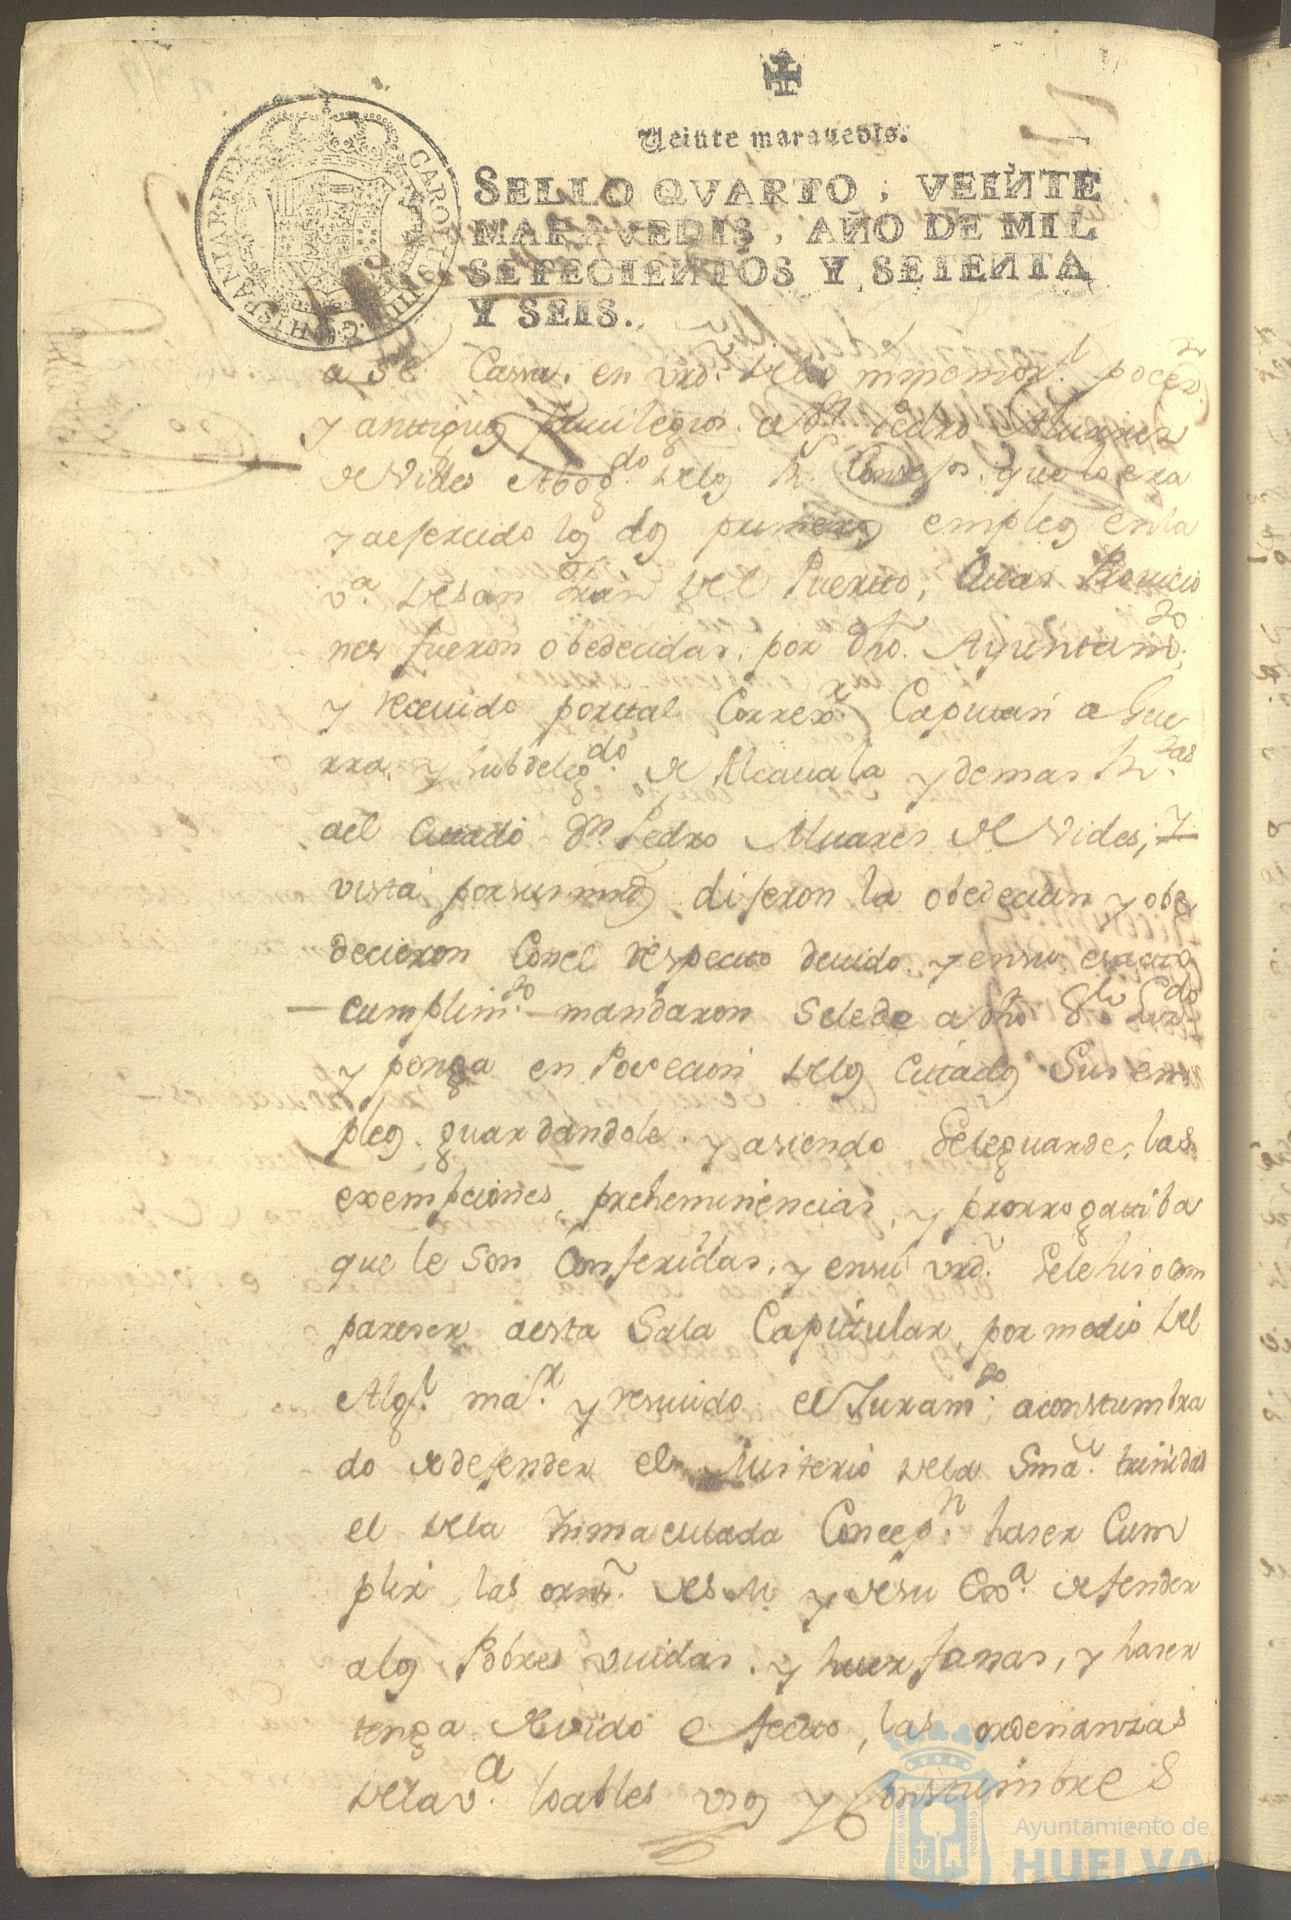 Veinte maravedis.
SELLO QVARTO, VEINTE
MARAVEDIS, AÑO DE MIL
SETECIENTOS Y SETENTA
Y SEIS.
HISPANIAR·REX CAROLUS III D·G·
a de Cassa. en vrd. delos inmemor.l pocecn.
y antiguos privilegios a Dn. Pedro Alvarez
de Vides Abog.do delos R.s Consejos, que lo era
y aejercido los dos primeros empleos en la
v.a de San Juan del Puerto, Cuias Provicio
nes fueron obedecidas, por dho. Ayuntam.to
y receuido por tal Correx.r Capitan a Gue
rra, y subdeleg.do de Alcauala y demas R.tas
ael Citado Dn. Pedro Aluares de Vides, y
vista por sus mrds. dijeron la obedecian y obe
decieron Con el Respecto deuido y en su exacto
cumplim.to mandaron Se le de a dho
y ponga en Pocecion delos Citados Sus em
pleos guardandole y asiendo Se le guarde, las
exempciones, preheminencias, y prorrogatiba
que le Son Conferidas, y en su vrd. Se le hiso com
pareser aesta Sala Capitular por medio del
Alg.l ma.r y resiuido el Juram.to aconstumbra
do de defender el Misterio de la Sma. trinidad
el de la Inmaculada Concep.n haser Cum
plir las orns. de S. M. y de su Exa. defender
alos Pobres viudas, y huerfanas, y haser
tenga devido efecto, las ordenanzas
de la v.a loables vsos y Constumbres
PORTUS MARIS ET TERRAE CUSTODIA
Ayuntamiento de
HUELVA